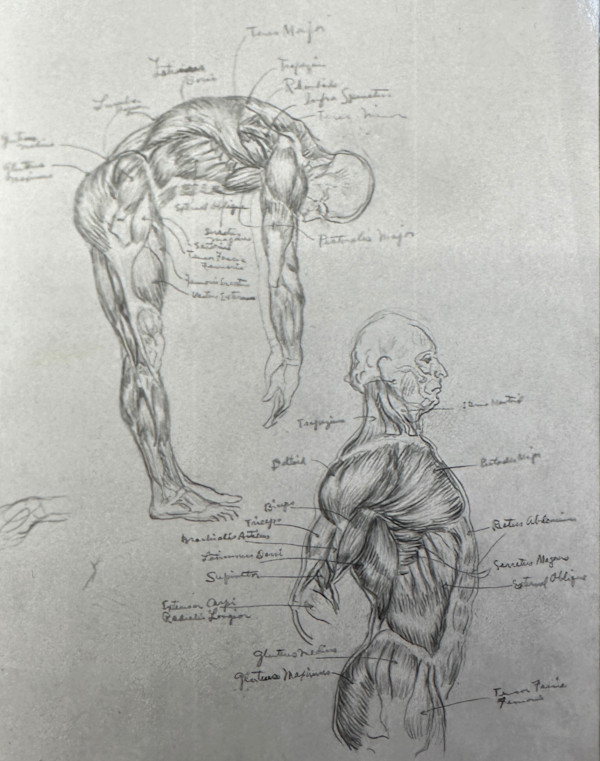 Teres Major
Trapezius
Latissimus
Dorsi
Rhomboids
Infra Spinatus
Teres Minor
Gluteus
Medius
Gluteus
Maximus
External Oblique
Serratus
Magnus
Sartorius
Tensor Fascia
Femoris
Vastus Externus
Pectoralis Major
Trapezius
Deltoid
Biceps
Triceps
Brachialis Anticus
Latissimus Dorsi
Supinator
Extensor Carpi
Radialis Longior
Rectus Abdominis
Serratus Magnus
External Oblique
Gluteus Medius
Gluteus Maximus
Tensor Fascia
Femoris